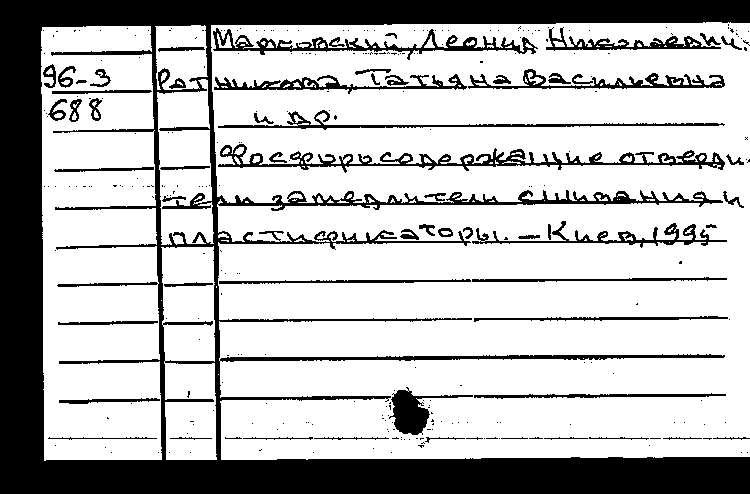 Марковский, Леонид Николаевич.
96-3 Ратникова, Татьяна Васильевна
688 и др.
Фосфорсодержащие отверди
тели замедлители сшивания и
пластификаторы. – Киев, 1995